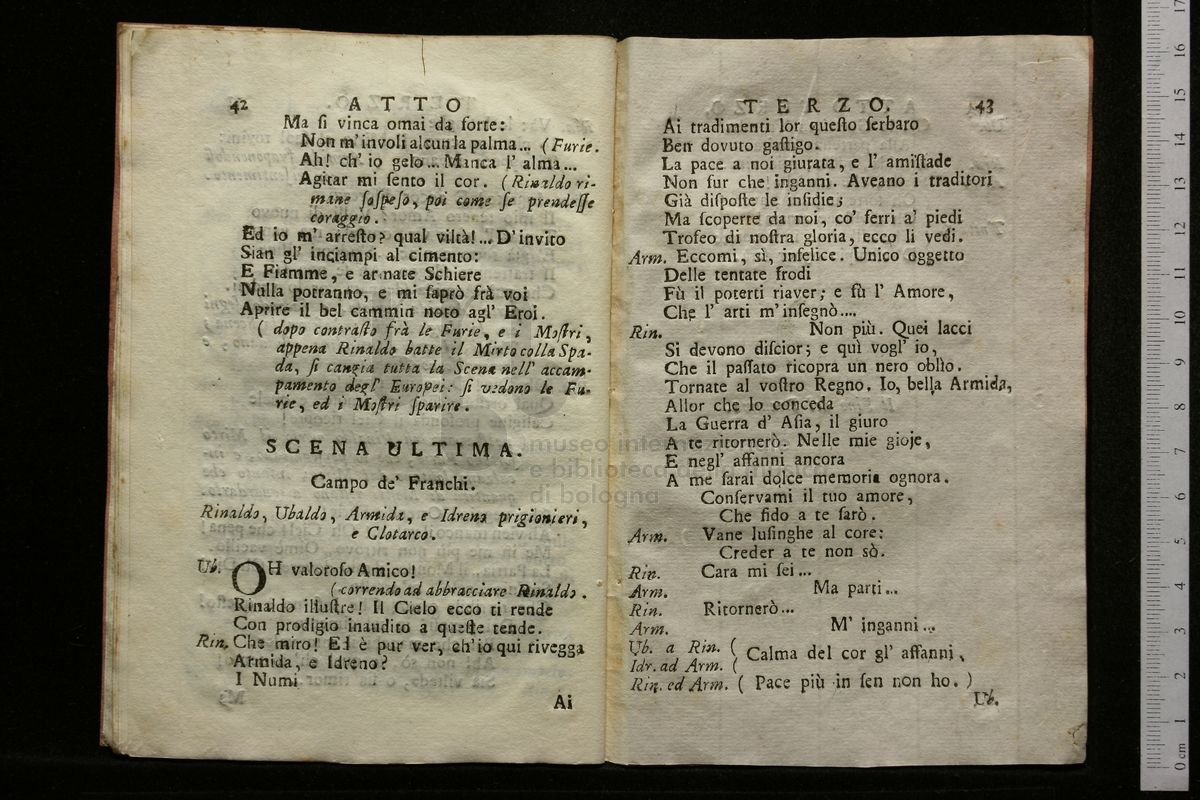 42 ATTO
Ma ſi vinca omai da forte:
Non m'involi alcun la palma... (Furie.
Ah! ch' io gelo... Manca l' alma...
Agitar mi ſento il cor. (Rinaldo ri-
mane ſoſpeſo, poi come ſe prendeſſe
coraggio.
Ed io m' arreſto? qual viltà!... D' invito
Sian gl' inciampi al cimento:
E Fiamme, e armate Schiere
Nulla potranno, e mi ſaprò frà voi
Aprire il bel cammin noto agl' Eroi.
( dopo contraſto frà le Furie, e i Moſtri,
appena Rinaldo batte il Mirto colla Spa-
da, ſi cangia tutta la Scena nell' accam-
pamento degl' Europei: ſi vedono le Fu-
rie, ed i Moſtri ſparire.
SCENA ULTIMA.
Campo de' Franchi.
Rinaldo, Ubaldo, Armida, e Idreno prigionieri,
e Clotarco.
Ub. OH valoroſo Amico!
(correndo ad abbracciare Rinaldo.
Rinaldo illuſtre! Il Cielo ecco ti rende
Con prodigio inaudito a queſte tende.
Rin. Che miro! Ed è pur ver, ch'io qui rivegga
Armida, e Idreno?
I Numi
Ai
TERZO. 43
Ai tradimenti lor queſto ſerbaro
Ben dovuto gaſtigo.
La pace a noi giurata, e l' amiſtade
Non fur che inganni. Aveano i traditori
Già diſpoſte le inſidie;
Ma ſcoperte da noi, co' ferri a' piedi
Trofeo di noſtra gloria, ecco li vedi.
Arm. Eccomi, sì, infelice. Unico oggetto
Delle tentate frodi
Fù il poterti riaver; e fù l' Amore,
Che l' arti m'inſegnò....
Rin. Non più. Quei lacci
Si devono diſcior; e quì vogl' io,
Che il paſſato ricopra un nero oblìo.
Tornate al voſtro Regno. Io, bella Armida,
Allor che lo conceda
La Guerra d' Aſia, il giuro
A te ritornerò. Nelle mie gioje,
E negl' affanni ancora
A me ſarai dolce memoria ognora.
Conſervami il tuo amore,
Che fido a te ſarò.
Arm. Vane luſinghe al core:
Creder a te non sò.
Rin. Cara mi ſei...
Arm. Ma parti...
Rin. Ritornerò...
Arm. M' inganni...
Ub. a Rin. (
Calma del cor gl' affanni,
Idr. ad Arm. (
Rin. ed Arm. ( Pace più in ſen non ho. )
Ub.
museo inte
e biblioteca de
di bologna
0 cm 1 2 3 4 5 6 7 8 9 10 11 12 13 14 15 16 17